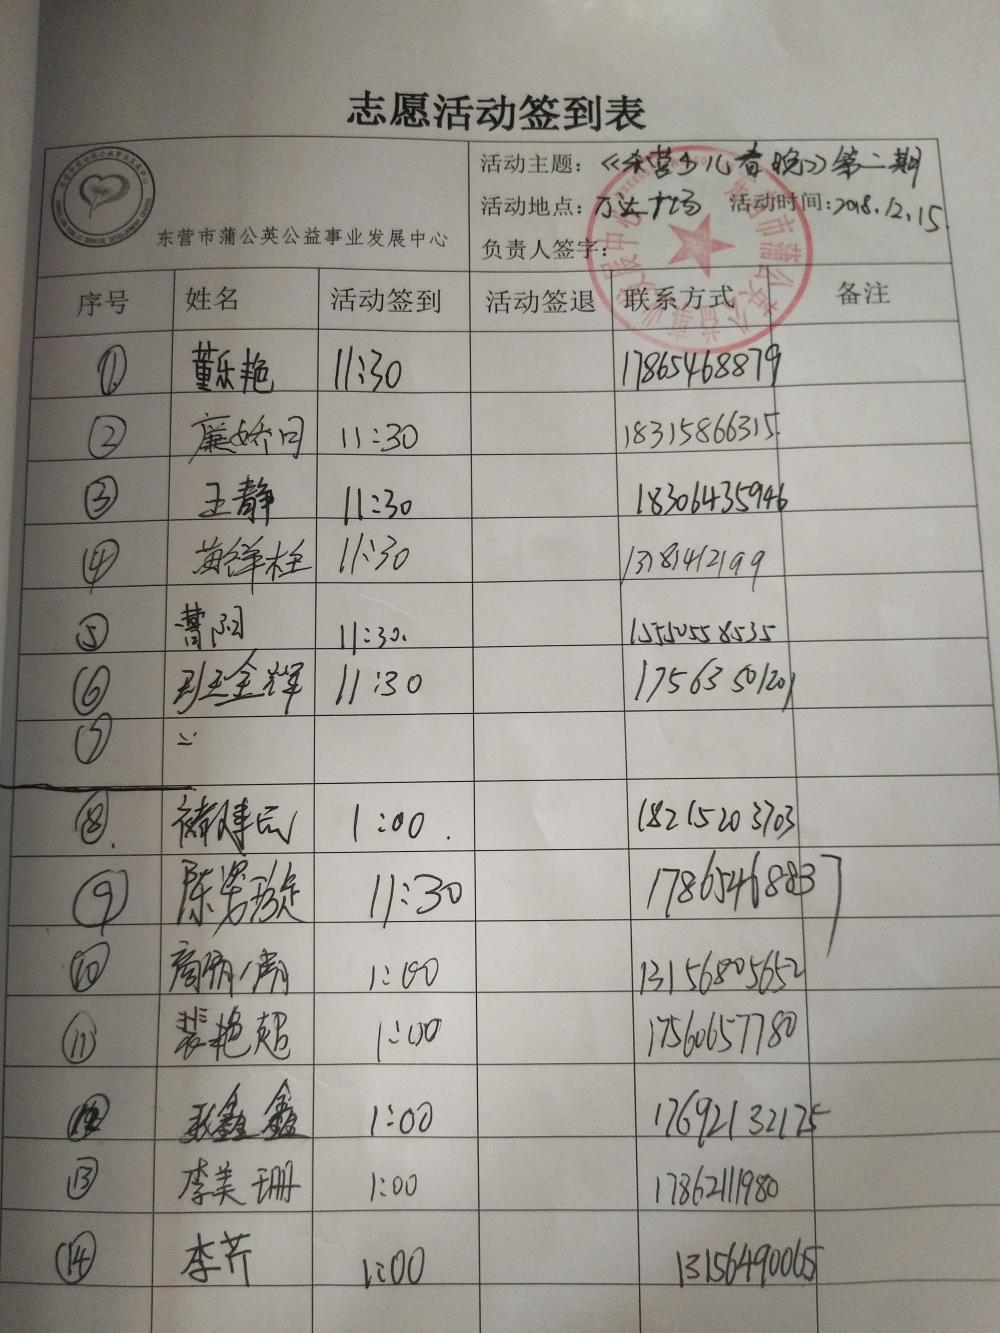 志愿活动签到表
东营市蒲公英公益事业发展中心
活动主题：《东营少儿春晚》第二期
活动地点：万达广场 活动时间：2018.12.15
负责人签字：
序号 姓名 活动签到 活动签退 联系方式 备注
① 董乐艳 11:30 17865468879
② 11:30 18315866315
③ 王静 11:30 18306435946
④ 11:30
⑤ 11:30. 15550558535
⑥ 11:30 17563501201
⑦
⑧ 1:00. 18215203703
⑨ 11:30 17865468837
⑩ 1:00 13156805652
⑪ 裴艳超 1:00 17560657780
⑫ 鑫鑫 1:00 17692132175
⑬ 李美珊 1:00 17862111980
⑭ 李芹 1:00 13156490065